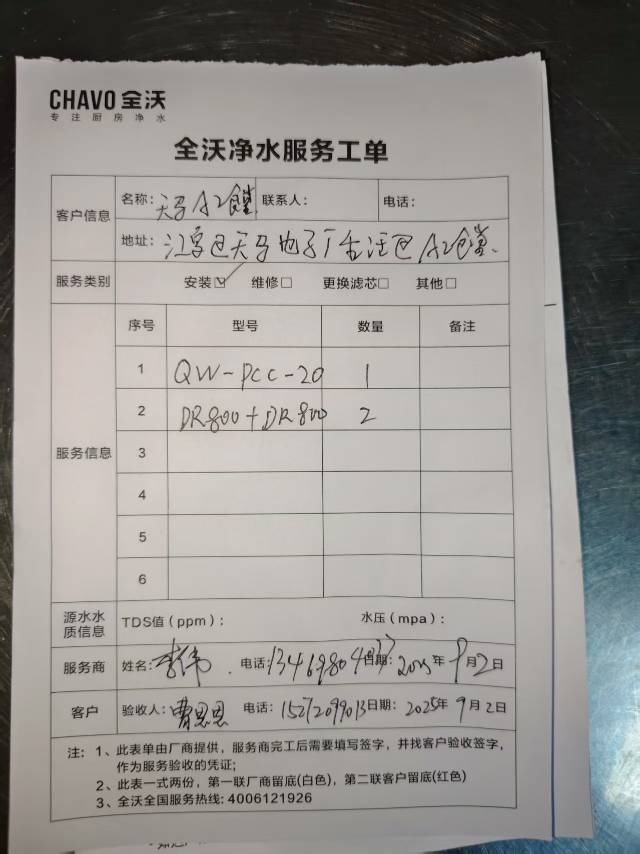 CHAVO 全沃
专注厨房净水
全沃净水服务工单
客户信息
名称: 天马A2食堂 联系人: 电话:
地址: 江夏区天马电子厂生活区A2食堂
服务类别 安装☑ 维修□ 更换滤芯□ 其他□
服务信息
序号 型号 数量 备注
1 QW-PCC-20 1
2 DR800+DR800 2
3
4
5
6
源水水质信息 TDS值(ppm): 水压(mpa):
服务商 姓名: 李伟 电话: 日期: 2025年9月2日
客户 验收人: 曹思思 电话: 15272099013 日期: 2025年9月2日
注: 1、此表单由厂商提供，服务商完工后需要填写签字，并找客户验收签字，
作为服务验收的凭证;
2、此表一式两份，第一联厂商留底(白色)，第二联客户留底(红色)
3、全沃全国服务热线: 4006121926